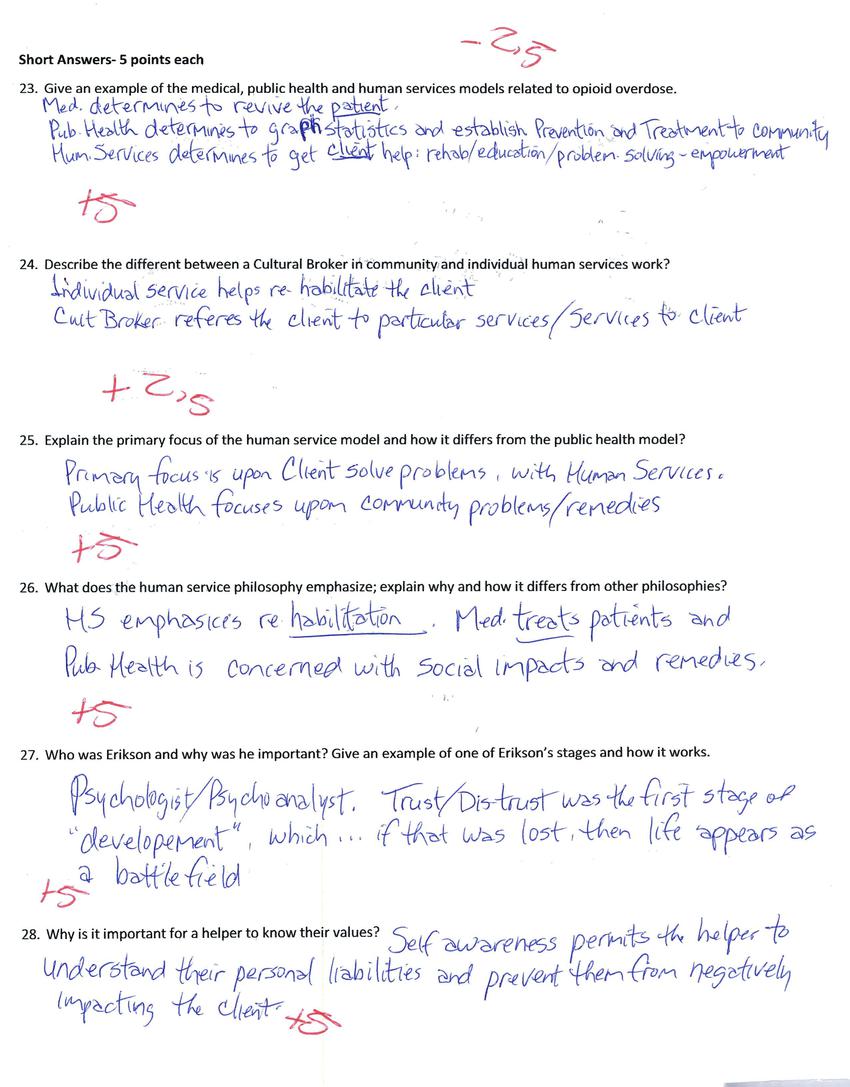 - 2,5
Short Answers- 5 points each
23. Give an example of the medical, public health and human services models related to opioid overdose.
Med. determines to revive the patient.
Pub. Health determines to graph statistics and establish Prevention and Treatment to community
Hum. Services determines to get client help: rehab/education/problem solving - empowerment
+5
24. Describe the different between a Cultural Broker in community and individual human services work?
Individual service helps re-habilitate the client
Cult Broker referes the client to particular services/services to client
+ 2,5
25. Explain the primary focus of the human service model and how it differs from the public health model?
Primary focus is upon Client solve problems, with Human Services.
Public Health focuses upon community problems/remedies
+5
26. What does the human service philosophy emphasize; explain why and how it differs from other philosophies?
HS emphasices re habilitation. Med. treats patients and
Pub. Health is concerned with social impacts and remedies.
+5
27. Who was Erikson and why was he important? Give an example of one of Erikson's stages and how it works.
Psychologist/Psychoanalyst. Trust/Distrust was the first stage of
"developement", which ... if that was lost, then life appears as
a battlefield
+5
28. Why is it important for a helper to know their values? Self awareness permits the helper to
understand their personal liabilities and prevent them from negatively
impacting the client.
+5